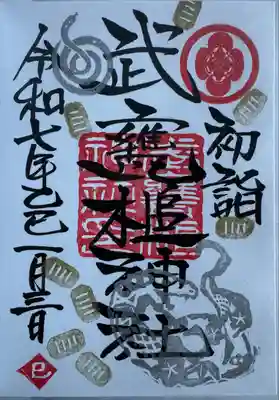 初詣
武甕槌神社
令和七年乙巳一月三日
巳